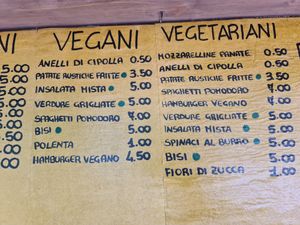 NI
5.00
5.00
5.00
VEGANI
ANELLI DI CIPOLLA 0.50
PATATE RUSTICHE FRITTE 3.50
INSALATA MISTA 5.00
VERDURE GRIGLIATE 5.00
SPAGHETTI POMODORO 7.00
BISI 5.00
POLENTA 1.00
HAMBURGER VEGANO 4.50
VEGETARIANI
MOZZARELLINE PANATE 0.50
ANELLI DI CIPOLLA 0.50
PATATE RUSTICHE FRITTE 3.50
SPAGHETTI POMODORO 7.00
HAMBURGER VEGANO 4.00
VERDURE GRIGLIATE 5.00
INSALATA MISTA 5.00
SPINACI AL BURRO 5.00
BISI 5.00
FIORI DI ZUCCA 1.00